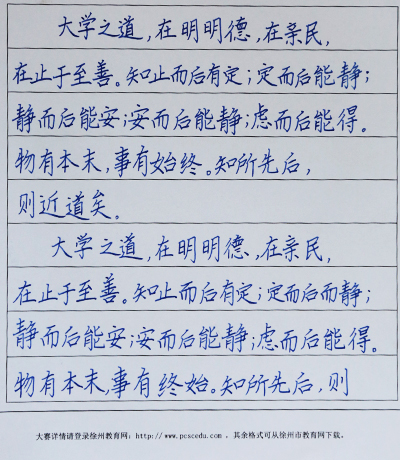 大学之道,在明明德,在亲民,
在止于至善。知止而后有定;定而后能静;
静而后能安;安而后能静;虑而后能得。
物有本末,事有始终。知所先后,
则近道矣。
大学之道,在明明德,在亲民,
在止于至善。知止而后有定;定而后而静;
静而后能安;安而后能静;虑而后能得。
物有本末,事有终始。知所先后,则
大赛详情请登录徐州教育网:http://www.pcscedu.com ,其余格式可从徐州市教育网下载。